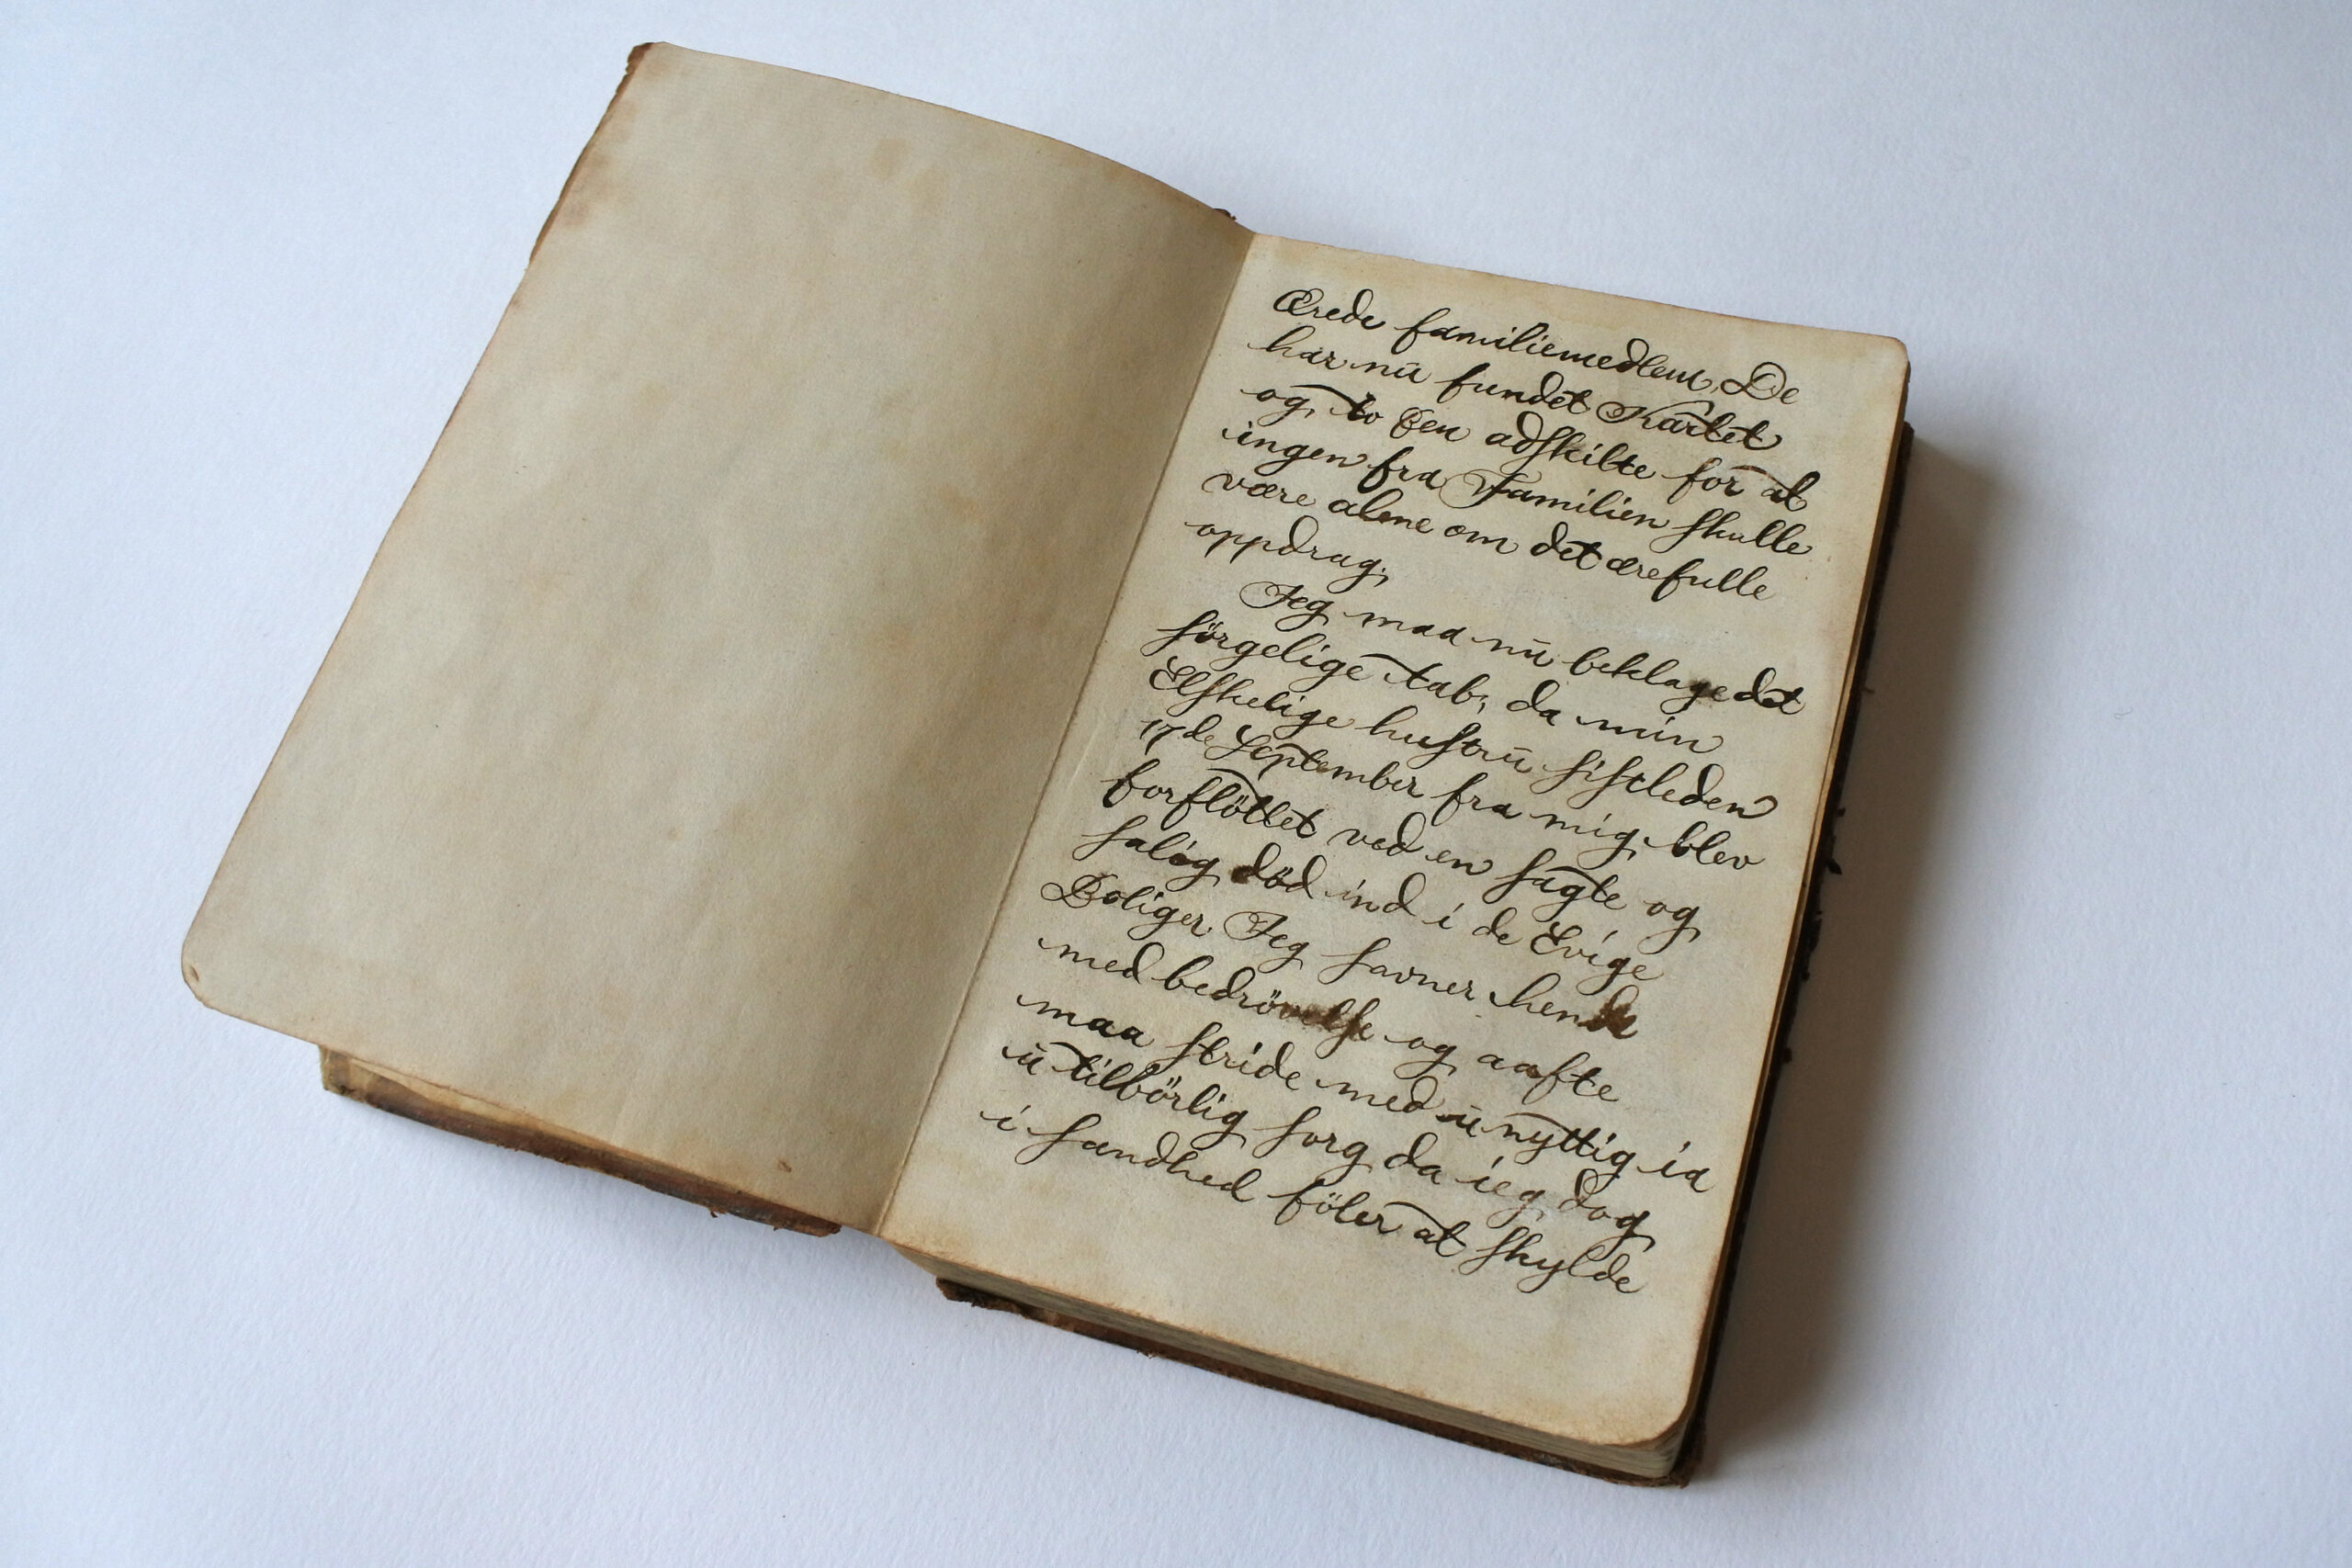 Ærede familiemedlem, De
har nu fundet Kartet
og to Een adskilte for at
ingen fra Familien skulle
være alene om det ærefulle
oppdrag.
Jeg maa nu beklage det
sörgelige tab, da min
Elskelige hustru sistleden
17de September fra mig blev
forflöttet ved en sagte og
salig död ind i de Evige
Boliger. Jeg savner hende
med bedrövelse og aafte
maa stride med unyttig ia
utilbörlig sorg da ieg dog
i sandhed föler at skylde